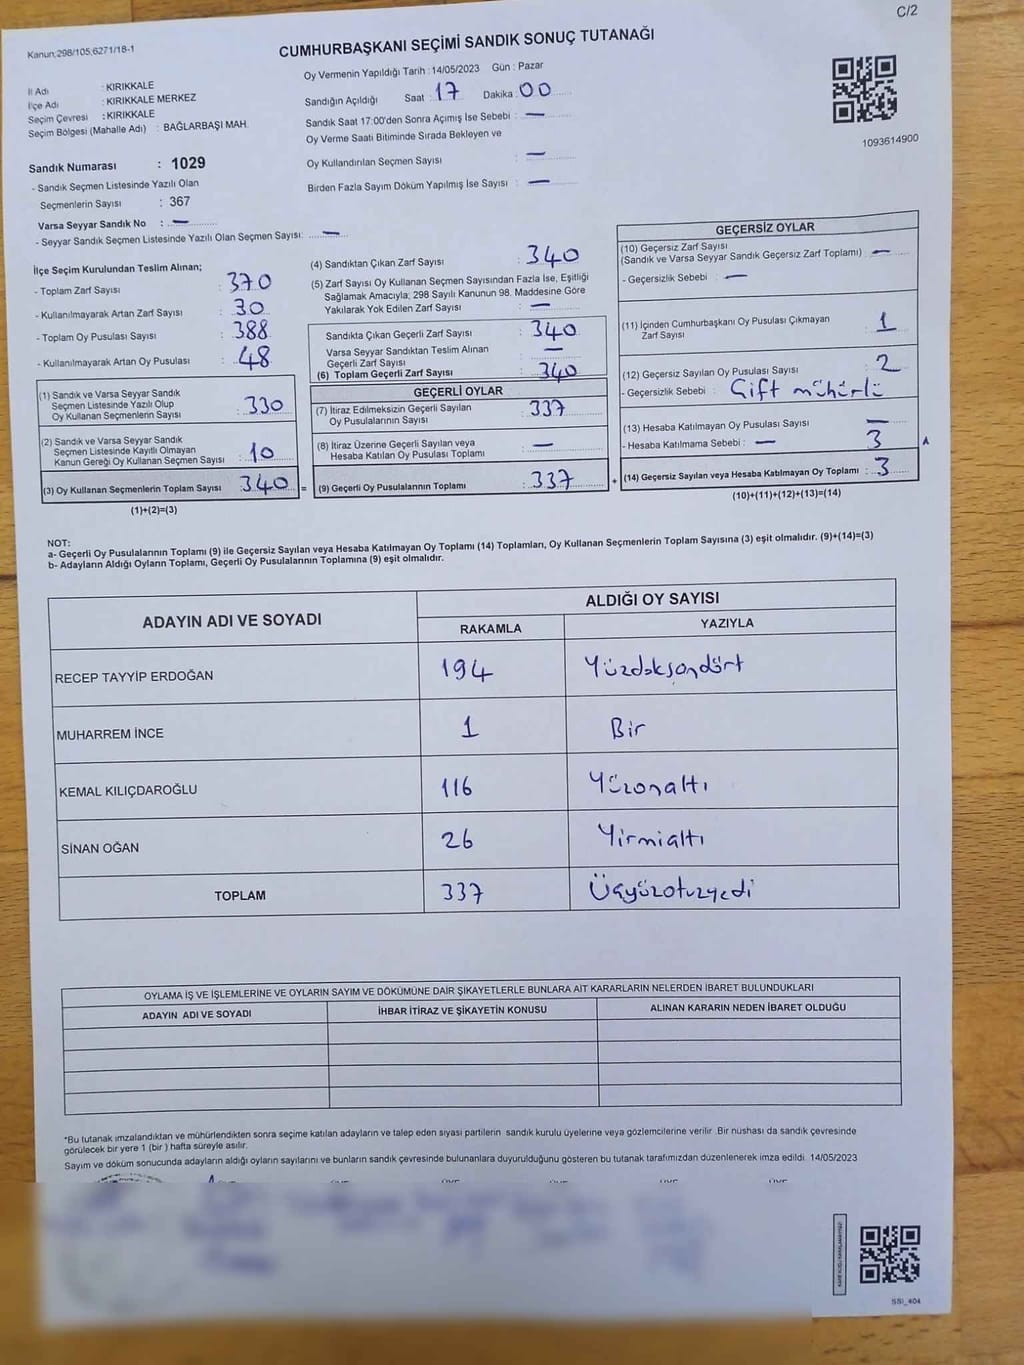 C/2
Kanun;298/105;6271/18-1
CUMHURBAŞKANI SEÇİMİ SANDIK SONUÇ TUTANAĞI
İl Adı : KIRIKKALE
İlçe Adı : KIRIKKALE MERKEZ
Seçim Çevresi : KIRIKKALE
Seçim Bölgesi (Mahalle Adı) : BAĞLARBAŞI MAH.
Sandık Numarası : 1029
- Sandık Seçmen Listesinde Yazılı Olan
Seçmenlerin Sayısı : 367
Varsa Seyyar Sandık No : —
- Seyyar Sandık Seçmen Listesinde Yazılı Olan Seçmen Sayısı: —
Oy Vermenin Yapıldığı Tarih :14/05/2023 Gün : Pazar
Sandığın Açıldığı Saat : 17 Dakika : 00
Sandık Saat 17:00'den Sonra Açımış İse Sebebi : —
Oy Verme Saati Bitiminde Sırada Bekleyen ve
Oy Kullandırılan Seçmen Sayısı : —
Birden Fazla Sayım Döküm Yapılmış İse Sayısı : —
1093614900
İlçe Seçim Kurulundan Teslim Alınan;
- Toplam Zarf Sayısı : 370
- Kullanılmayarak Artan Zarf Sayısı : 30
- Toplam Oy Pusulası Sayısı : 388
- Kullanılmayarak Artan Oy Pusulası : 48
(1) Sandık ve Varsa Seyyar Sandık
Seçmen Listesinde Yazılı Olup
Oy Kullanan Seçmenlerin Sayısı : 330
(2) Sandık ve Varsa Seyyar Sandık
Seçmen Listesinde Kayıtlı Olmayan
Kanun Gereği Oy Kullanan Seçmen Sayısı : 10
(3) Oy Kullanan Seçmenlerin Toplam Sayısı : 340 =
(1)+(2)=(3)
(4) Sandıktan Çıkan Zarf Sayısı : 340
(5) Zarf Sayısı Oy Kullanan Seçmen Sayısından Fazla İse, Eşitliği
Sağlamak Amacıyla; 298 Sayılı Kanunun 98. Maddesine Göre
Yakılarak Yok Edilen Zarf Sayısı : —
Sandıkta Çıkan Geçerli Zarf Sayısı : 340
Varsa Seyyar Sandıktan Teslim Alınan
Geçerli Zarf Sayısı : —
(6) Toplam Geçerli Zarf Sayısı : 340
GEÇERLİ OYLAR
(7) İtiraz Edilmeksizin Geçerli Sayılan
Oy Pusulasının Sayısı : 337
(8) İtiraz Üzerine Geçerli Sayılan veya
Hesaba Katılan Oy Pusulası Toplamı : —
(9) Geçerli Oy Pusulalarının Toplamı : 337 +
GEÇERSİZ OYLAR
(10) Geçersiz Zarf Sayısı
(Sandık ve Varsa Seyyar Sandık Geçersiz Zarf Toplamı) : —
- Geçersizlik Sebebi : —
(11) İçinden Cumhurbaşkanı Oy Pusulası Çıkmayan
Zarf Sayısı : 1
(12) Geçersiz Sayılan Oy Pusulası Sayısı : 2
- Geçersizlik Sebebi : Çift mühürlü
(13) Hesaba Katılmayan Oy Pusulası Sayısı : —
- Hesaba Katılmama Sebebi : — 3
(14) Geçersiz Sayılan veya Hesaba Katılmayan Oy Toplamı : 3
(10)+(11)+(12)+(13)=(14)
NOT:
a- Geçerli Oy Pusulalarının Toplamı (9) ile Geçersiz Sayılan veya Hesaba Katılmayan Oy Toplamı (14) Toplamları, Oy Kullanan Seçmenlerin Toplam Sayısına (3) eşit olmalıdır. (9)+(14)=(3)
b- Adayların Aldığı Oyların Toplamı, Geçerli Oy Pusulalarının Toplamına (9) eşit olmalıdır.
ADAYIN ADI VE SOYADI ALDIĞI OY SAYISI
RAKAMLA YAZIYLA
RECEP TAYYİP ERDOĞAN 194 Yüzdoksandört
MUHARREM İNCE 1 Bir
KEMAL KILIÇDAROĞLU 116 Yüzonaltı
SİNAN OĞAN 26 Yirmialtı
TOPLAM 337 Üçyüzotuzyedi
OYLAMA İŞ VE İŞLEMLERİNE VE OYLARIN SAYIM VE DÖKÜMÜNE DAİR ŞİKAYETLERLE BUNLARA AİT KARARLARIN NELERDEN İBARET BULUNDUKLARI
ADAYIN ADI VE SOYADI İHBAR İTİRAZ VE ŞİKAYETİN KONUSU ALINAN KARARIN NEDEN İBARET OLDUĞU
*Bu tutanak imzalandıktan ve mühürlendikten sonra seçime katılan adayların ve talep eden siyasi partilerin sandık kurulu üyelerine veya gözlemcilerine verilir. Bir nüshası da sandık çevresinde
görülecek bir yere 1 (bir) hafta süreyle asılır.
Sayım ve döküm sonucunda adayların aldığı oyların sayılarını ve bunların sandık çevresinde bulunanlara duyurulduğunu gösteren bu tutanak tarafımızdan düzenlenerek imza edildi. 14/05/2023
SSI_404